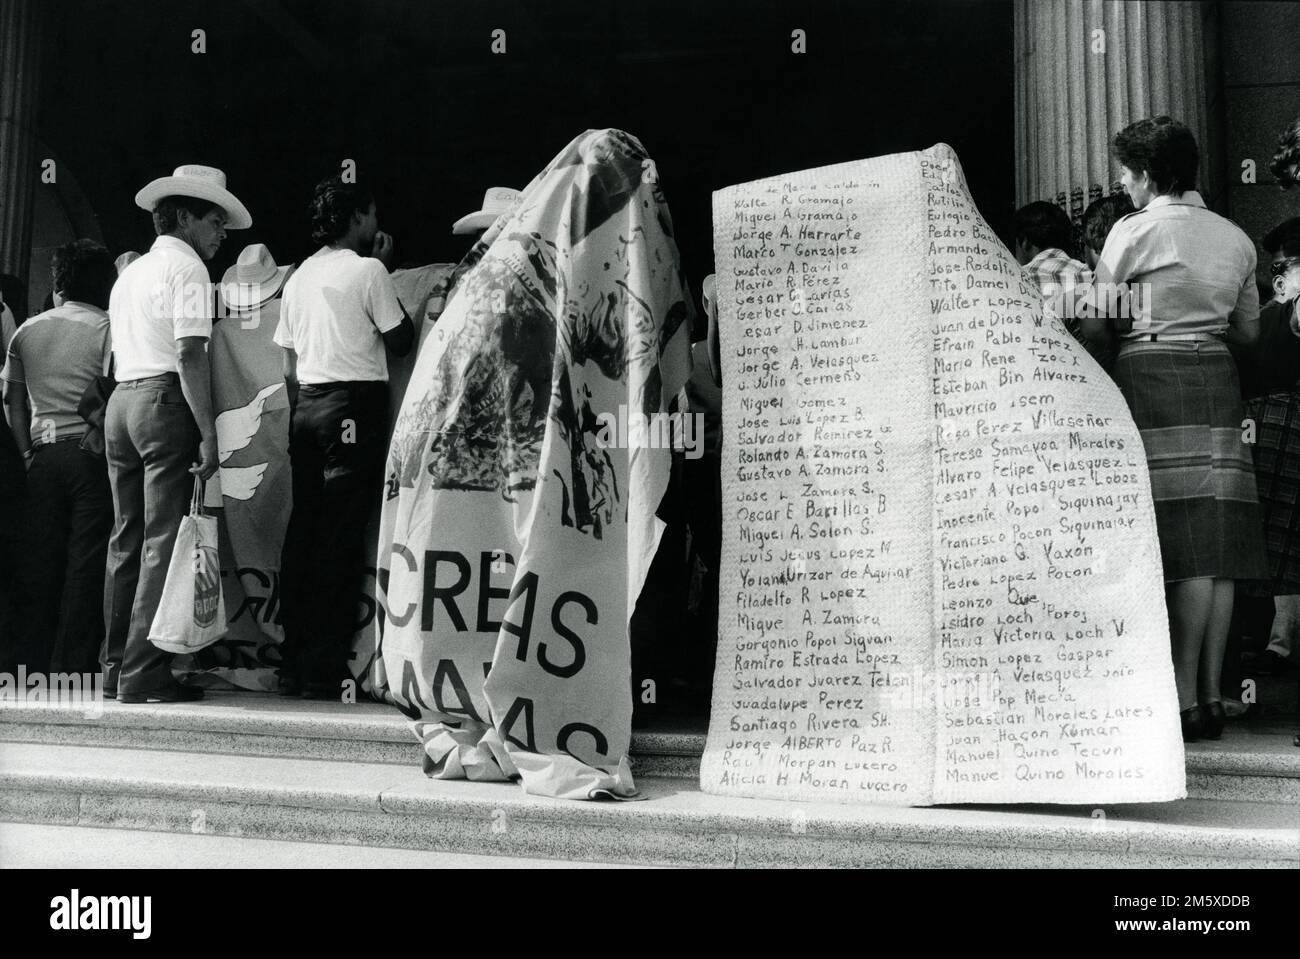 CREAS
de Maria Caldo in
Walte R. Gramajo
Miguel A. Gramajo
Jorge A. Harrarte
Marco T Gonzalez
Gustavo A. Davila
Mario R. Pérez
Cesar C. Larias
Gerber O. Carias
esar D. Jimenez
Jorge H. Lambur
Jorge A. Velasquez
J. Julio Cermeño
Miguel Gomez
Jose Luis López B.
Salvador Ramirez G
Rolando A. Zamora S.
Gustavo A. Zamora S.
Jose L Zamora S.
Oscar E Barillas B
Miguel A. Solon S.
Luis Jesus Lopez M
Yoland Urizar de Aguilar
Filadelfo R Lopez
Migue A. Zamora
Gorgonio Popol Siquan
Ramiro Estrada Lopez
Salvador Juarez Telon
Guadalupe Perez
Santiago Rivera SH.
Jorge ALBERTO Paz R.
Raul Morpan Lucero
Alicia H Moran Lucero
Ed
Carlos
Rutilio
Eulogio
Pedro Bac
Armando d
Jose Rodolfo
Tito Daniel
Walter Lopez
Juan de Dios
Efrain Pablo Lopez
Mario Rene Tzoc X
Esteban Bin Alvarez
Mauricio Isem
Rosa Perez Villaseñor
Teresa Samayoa Morales
Alvaro Felipe Velasquez L
Cesar A. Velasquez Lobos
Inocente Popol Siquinajay
Francisco Pocon Siquinajay
Victoriano G. Yaxón
Pedro Lopez Pocon
Leonzo Que
Isidro Loch Poroj
Maria Victoria Loch V.
Simon Lopez Gaspar
Jorge A. Velasquez Soto
Jose Pop Mecia
Sebastian Morales Lares
Juan Hagon Xuman
Manuel Quino Tecun
Manue Quino Morales
alamy
Image ID: 2M5XDDB
www.alamy.com